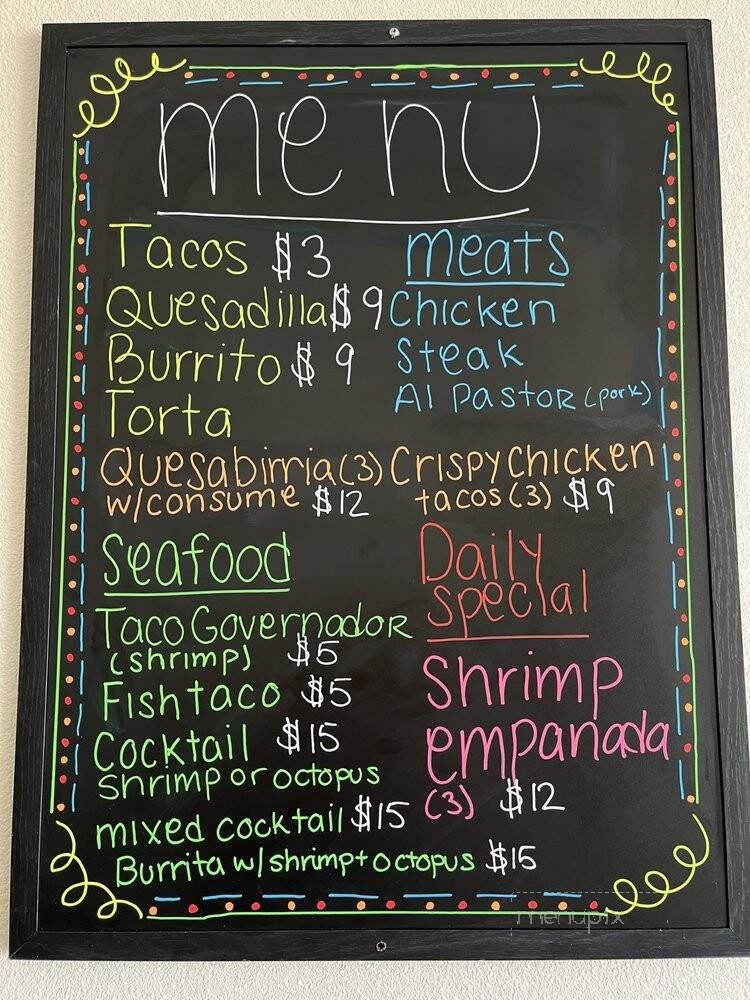 menu
Tacos $3
Quesadilla $9
Burrito $9
Torta
meats
Chicken
Steak
Al Pastor (pork)
Quesabirria (3)
w/consume $12
Crispy Chicken
tacos (3) $9
Seafood
Taco Governador
(shrimp) $5
Fish taco $5
Cocktail $15
Shrimp or octopus
mixed cocktail $15
Burrita w/shrimp + octopus $15
Daily
special
Shrimp
empanada
(3) $12
menupix